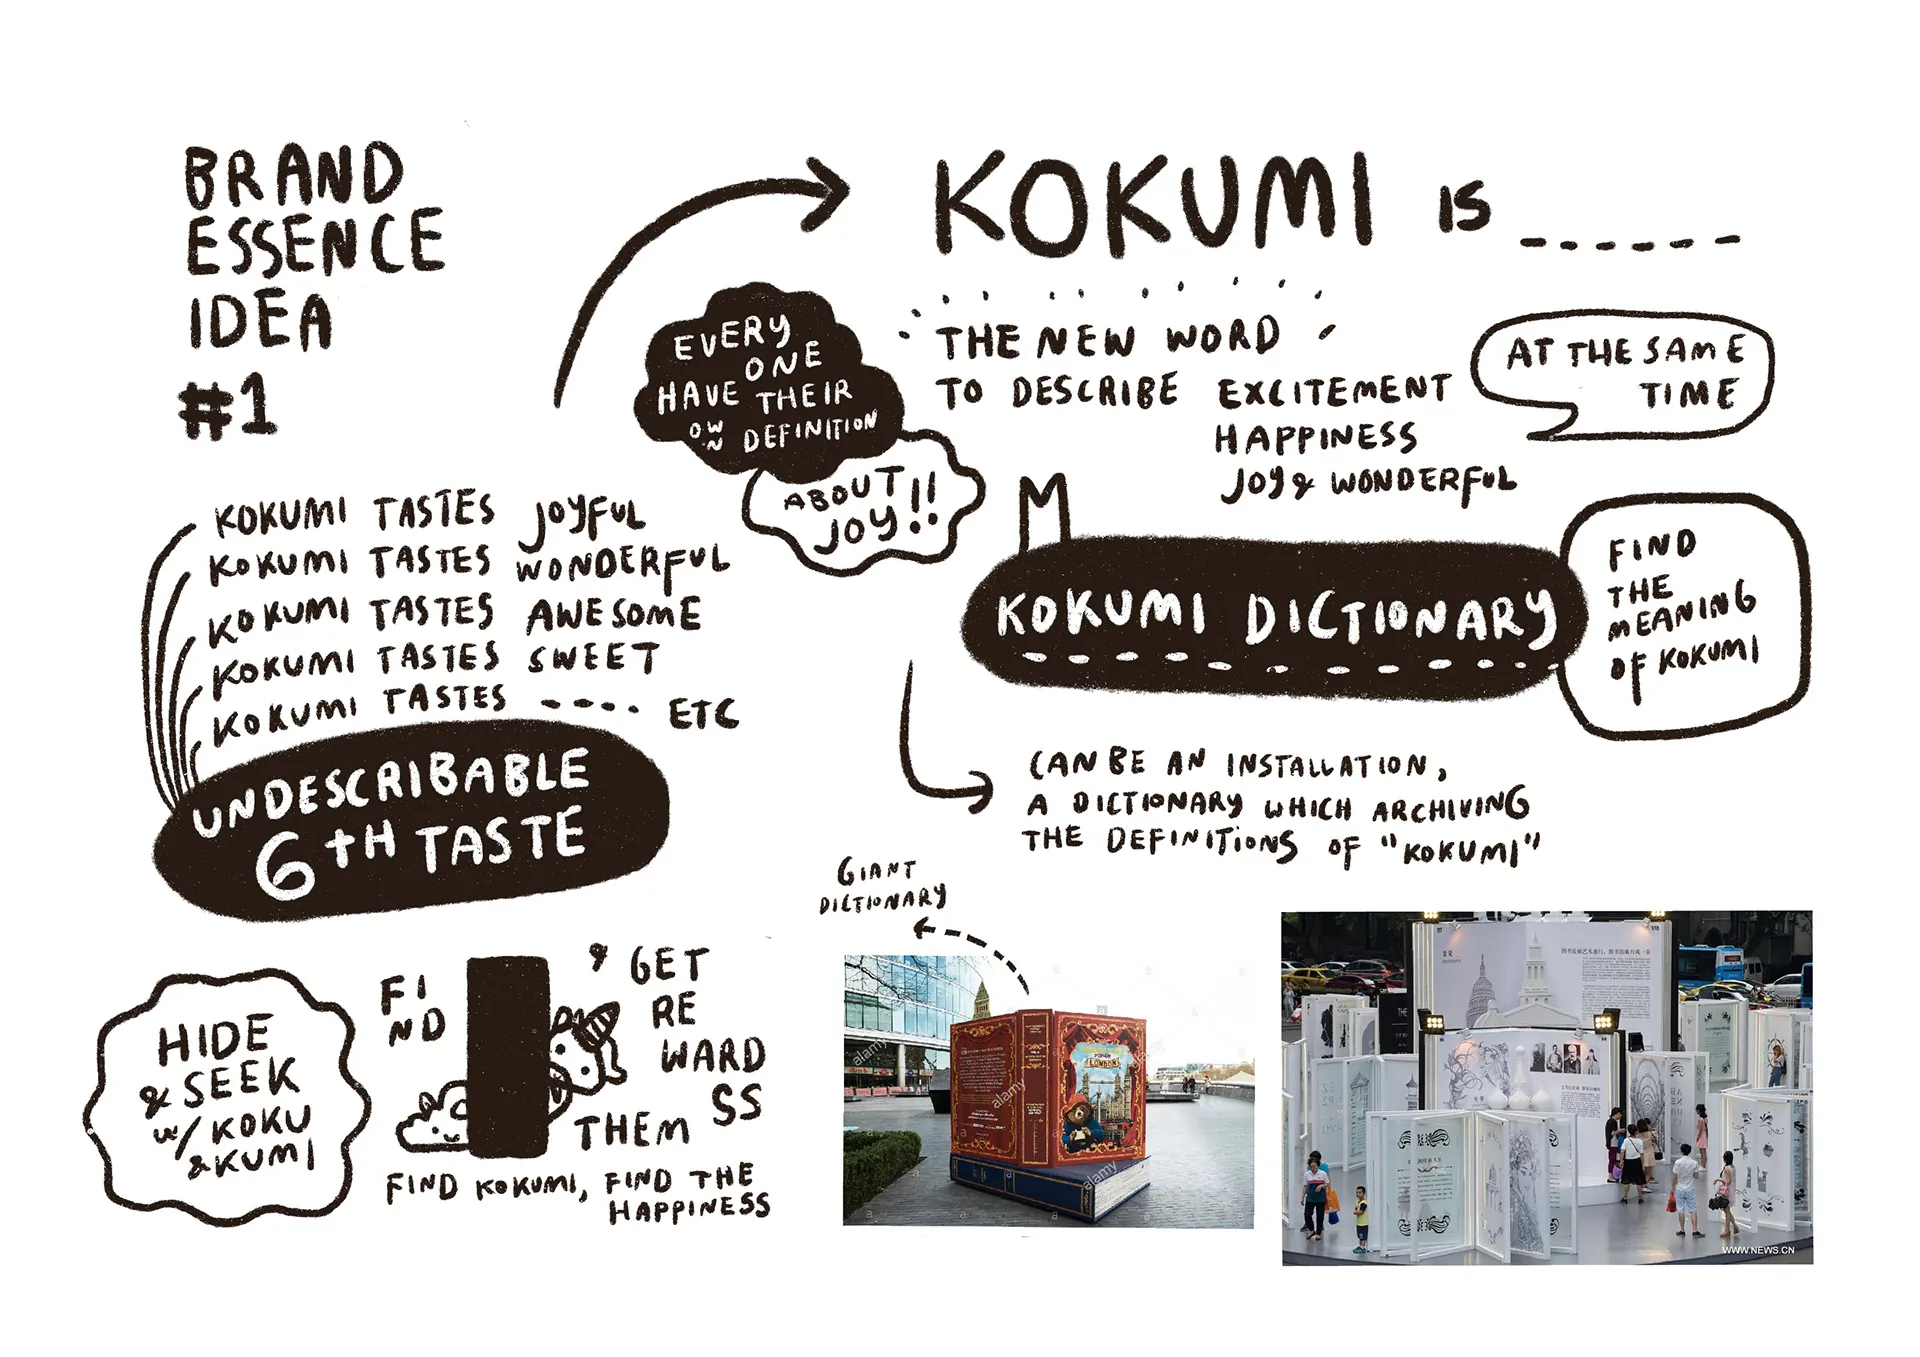 BRAND
ESSENCE
IDEA
#1
KOKUMI TASTES JOYFUL
KOKUMI TASTES WONDERFUL
KOKUMI TASTES AWESOME
KOKUMI TASTES SWEET
KOKUMI TASTES ---- ETC
UNDESCRIBABLE
6TH TASTE
HIDE
& SEEK
W/ KOKU
& KUMI
FI
ND
& GET
RE
WARD
SS
THEM
FIND KOKUMI, FIND THE
HAPPINESS
EVERY
ONE
HAVE THEIR
OWN DEFINITION
ABOUT
JOY!!
KOKUMI IS ------
THE NEW WORD
TO DESCRIBE EXCITEMENT
HAPPINESS
JOY & WONDERFUL
AT THE SAME
TIME
KOKUMI DICTIONARY
FIND
THE
MEANING
OF KOKUMI
CAN BE AN INSTALLATION,
A DICTIONARY WHICH ARCHIVING
THE DEFINITIONS OF "KOKUMI"
GIANT
DICTIONARY
LONDON
alamy
alamy
alamy
THE
WWW.NEWS.CN